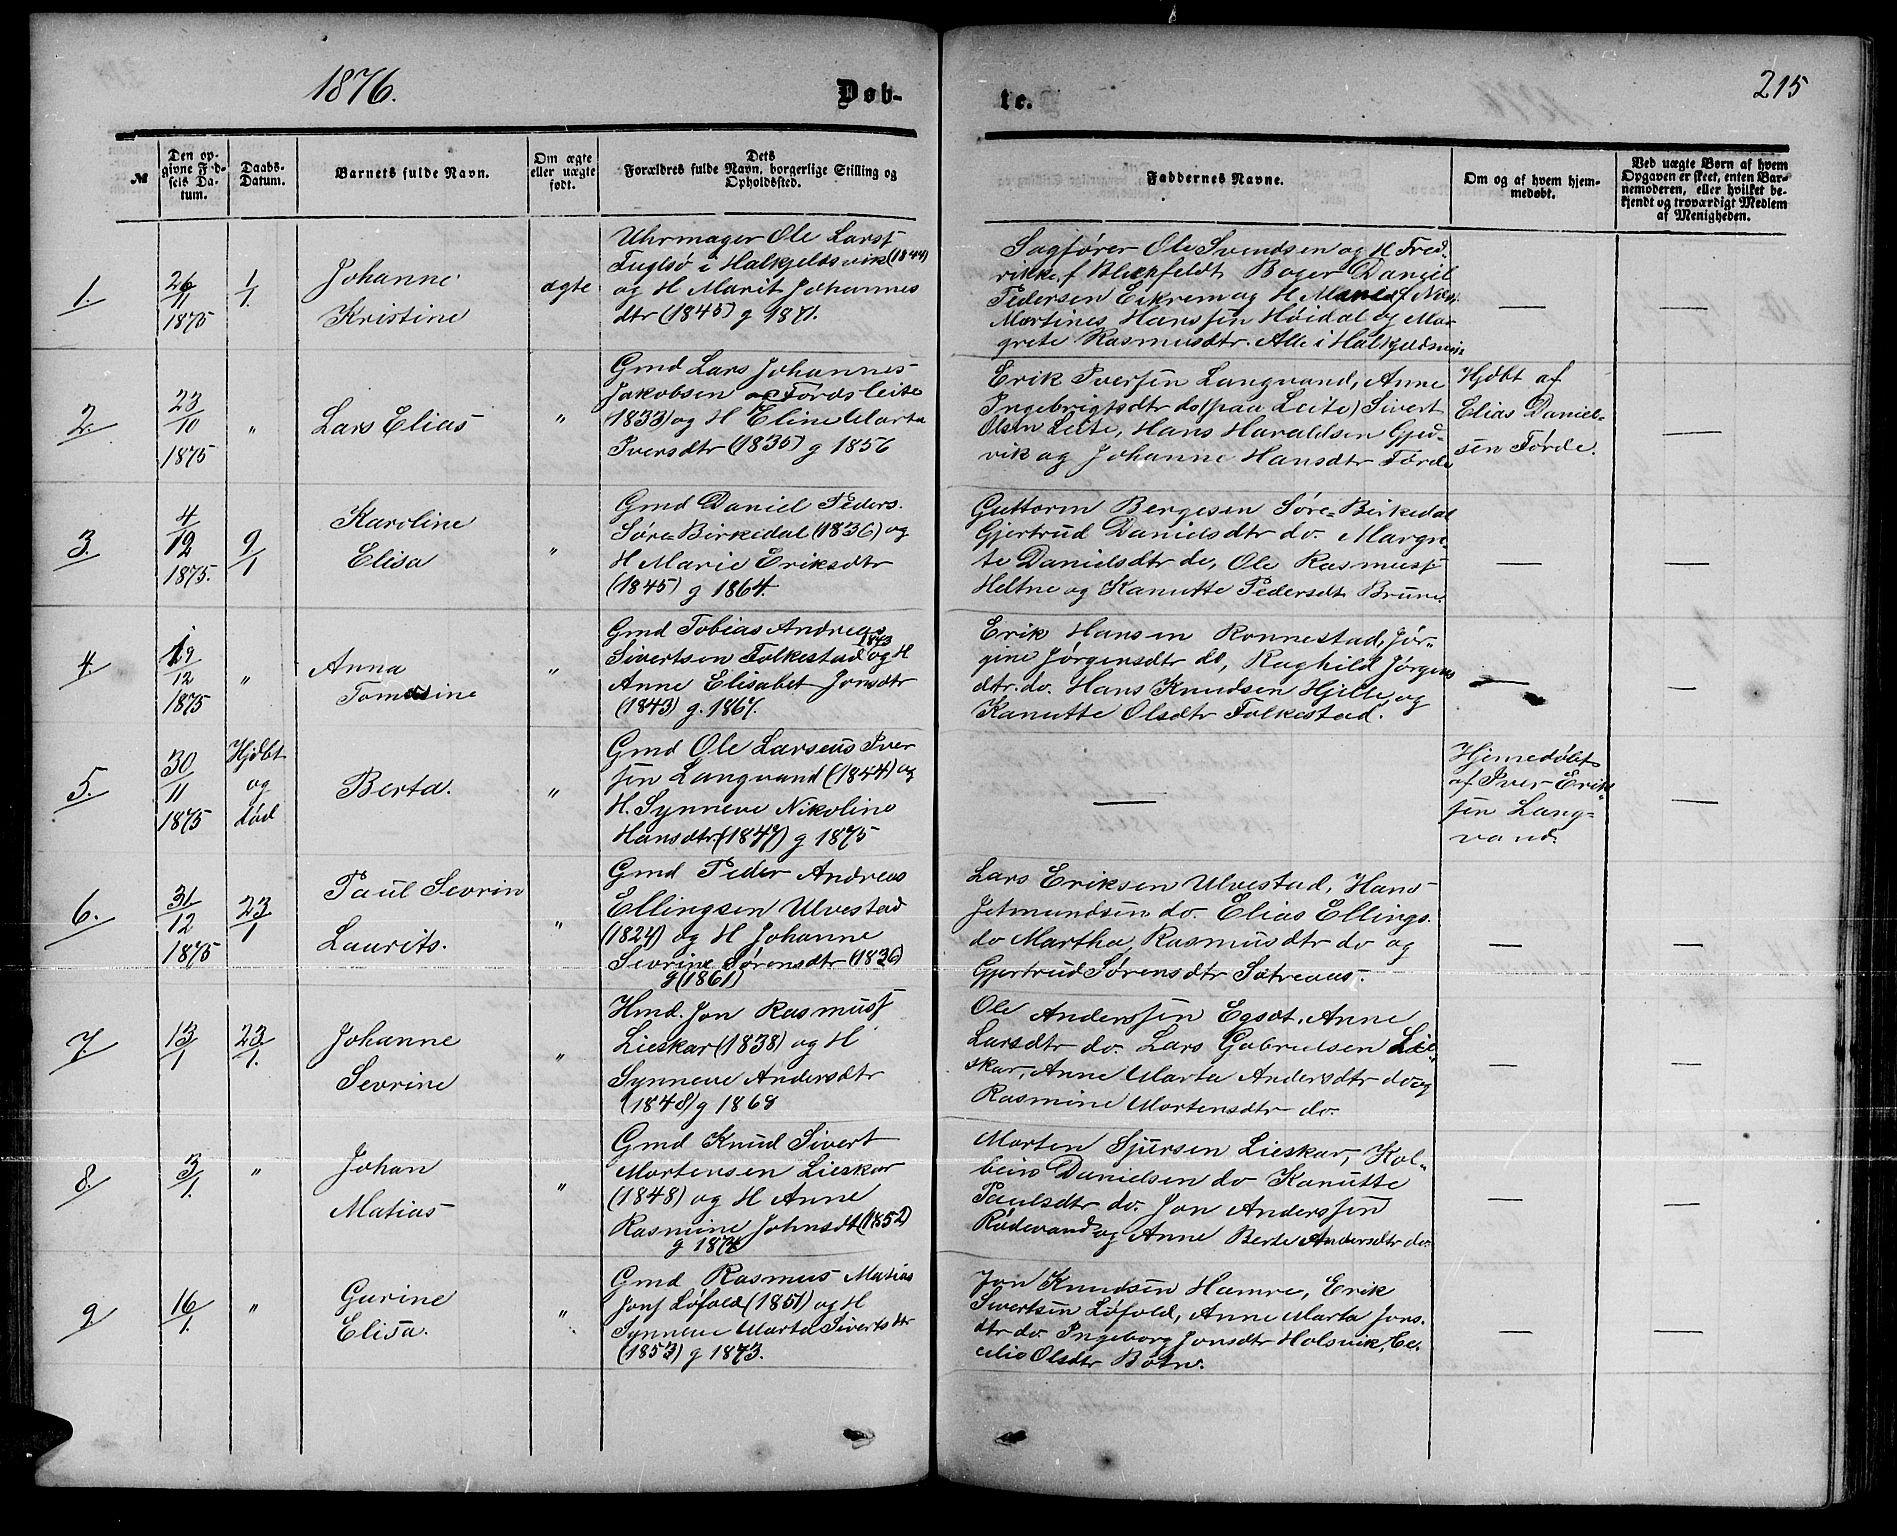 1876.
Døb-
te.
215
№
Den op-
givne Fød-
sels Da-
tum.
Daabs-
Datum.
Barnets fulde Navn.
Om ægte
eller uægte
født.
Dets
Forældres fulde Navn, borgerlige Stilling og
Opholdssted.
Faddernes Navne.
Om og af hvem hjem-
medøbt.
Ved uægte Børn af hvem
Opgaven er skeet, enten Bar-
nemoderen, eller hvilket be-
kjendt og troværdigt Medlem
af Menigheden.
1.
26/11
1875
1/1
Johanne
Kristine
ægte
Uhrmager Ole Larss
Fuglsø i Halkjeldsvik (1844)
og H Marit Johannes
dtr (1845) g 1871.
Sagfører Ole Svendsen og H Fred-
rikke f Blixfeldt Boger Daniel
Pedersen Eikrem og H
Martines Hanssen Høidal og Mar-
grete Rasmusdtr. Alle i Halkjeldsvik
—
—
2.
23/10
1875
"
Lars Elias
"
Gmd Lars Johannes
Jakobsen Førdsleite
(1833) og H Eline Marta
Iversdtr (1835) g 1856
Erik Iversen Langvand, Anne
Ingebrigtsdtr do (paa Leite) Sivert
Olsen Leite, Hans Haraldsen Gjed-
vik og Johanne Hansdtr Førde
Hjdbt af
Elias Daniel-
sen Førde.
—
3.
4/12
1875.
9/1
Karoline
Elisa
"
Gmd Daniel Peders.
Søre Birkedal (1836) og
H Marie Eriksdtr
(1845) g 1864.
Guttorm Bergesen Søre Birkedal
Gjertrud Danielsdtr do. Margre-
te Danielsdtr do, Ole Rasmuss
Heltne og Kanutte Pedersdt Brune.
—
—
4.
19/12
1875
"
Anna
Tomasine
"
Gmd Tobias Andreas
Sivertsen Folkestad 1843 og H
Anne Elisabet Jonsdtr
(1843) g. 1867.
Erik Hansen Ronnestad, Jør-
gine Jørgensdtr do, Raghild Jørgens
dtr. do. Hans Knudsen Hjelle, og
Kanutte Olsdtr Folkestad.
—
—
5.
30/11
1875
Hjdbt
og
død
Berta.
"
Gmd Ole Larseus Iver
sen Langvand (1844) og
H. Synneve Nikoline
Hansdtr (1847) g 1875
—
Hjemedøbt
af Iver Erik
sen Lang-
vand.
—
6.
31/12
1875
23/1
Paul Sevrin
Laurits.
"
Gmd Peder Andreas
Ellingsen Ulvestad
(1824) og H Johanne
Sevrine Sørensdtr (1836)
g (1861)
Lars Eriksen Ulvestad, Hans
Jetmundsen do. Elias Ellings.
do Martha Rasmusdtr do og
Gjertrud Sørensdtr
—
—
7.
13/1
23/1.
Johanne
Sevrine
"
Hmd. Jon Rasmuss
Lieskar (1838) og H
Synneve Andersdtr
(1848) g 1868
Ole Anderssen Egset, Anne
Larsdtr do. Lars Gabrielsen Lie-
skar, Anne Marta Andersdtr do og
Rasmine Mortensdtr do.
—
—
8.
3/1.
"
Johan
Matias
"
Gmd Knud Sivert
Mortensen Lieskar
(1848) og H Anne
Rasmine Johnsdt (1852)
g 1874
Morten Sjursen Lieskar, Kol-
bein Danielsen do Kanutte
Paulsdtr do. Jon Anderssen
Rødevand og Anne Berte Andersdtr do.
—
—
9
16/1.
"
Gurine
Elisa.
"
Gmd Rasmus Matias
Jons Løfold (1851) og H
Synneve Marta Siverts dtr
(1853) g 1873.
Jon Knudsen Hamre, Erik
Sivertsen Løfold, Anne Marta Jons.
dtr do Ingeborg Jonsdtr Holsvik, Ce-
cilie Olsdtr Botn.
—
—